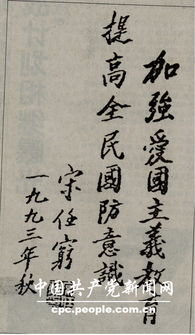 加強愛國主義教育
提高全民國防意識
宋任窮
一九九三年秋
中国共产党新闻网
cpc.people.com.cn